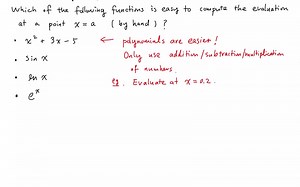 Which of the following functions is easy to compute the evaluation
at a point x = a (by hand)?
• x² + 3x - 5 ← polynomials are easier!
Only use addition/subtraction/multiplication
of numbers.
• sin x
• ln x
eg. Evaluate at x = 0.2.
• eˣ